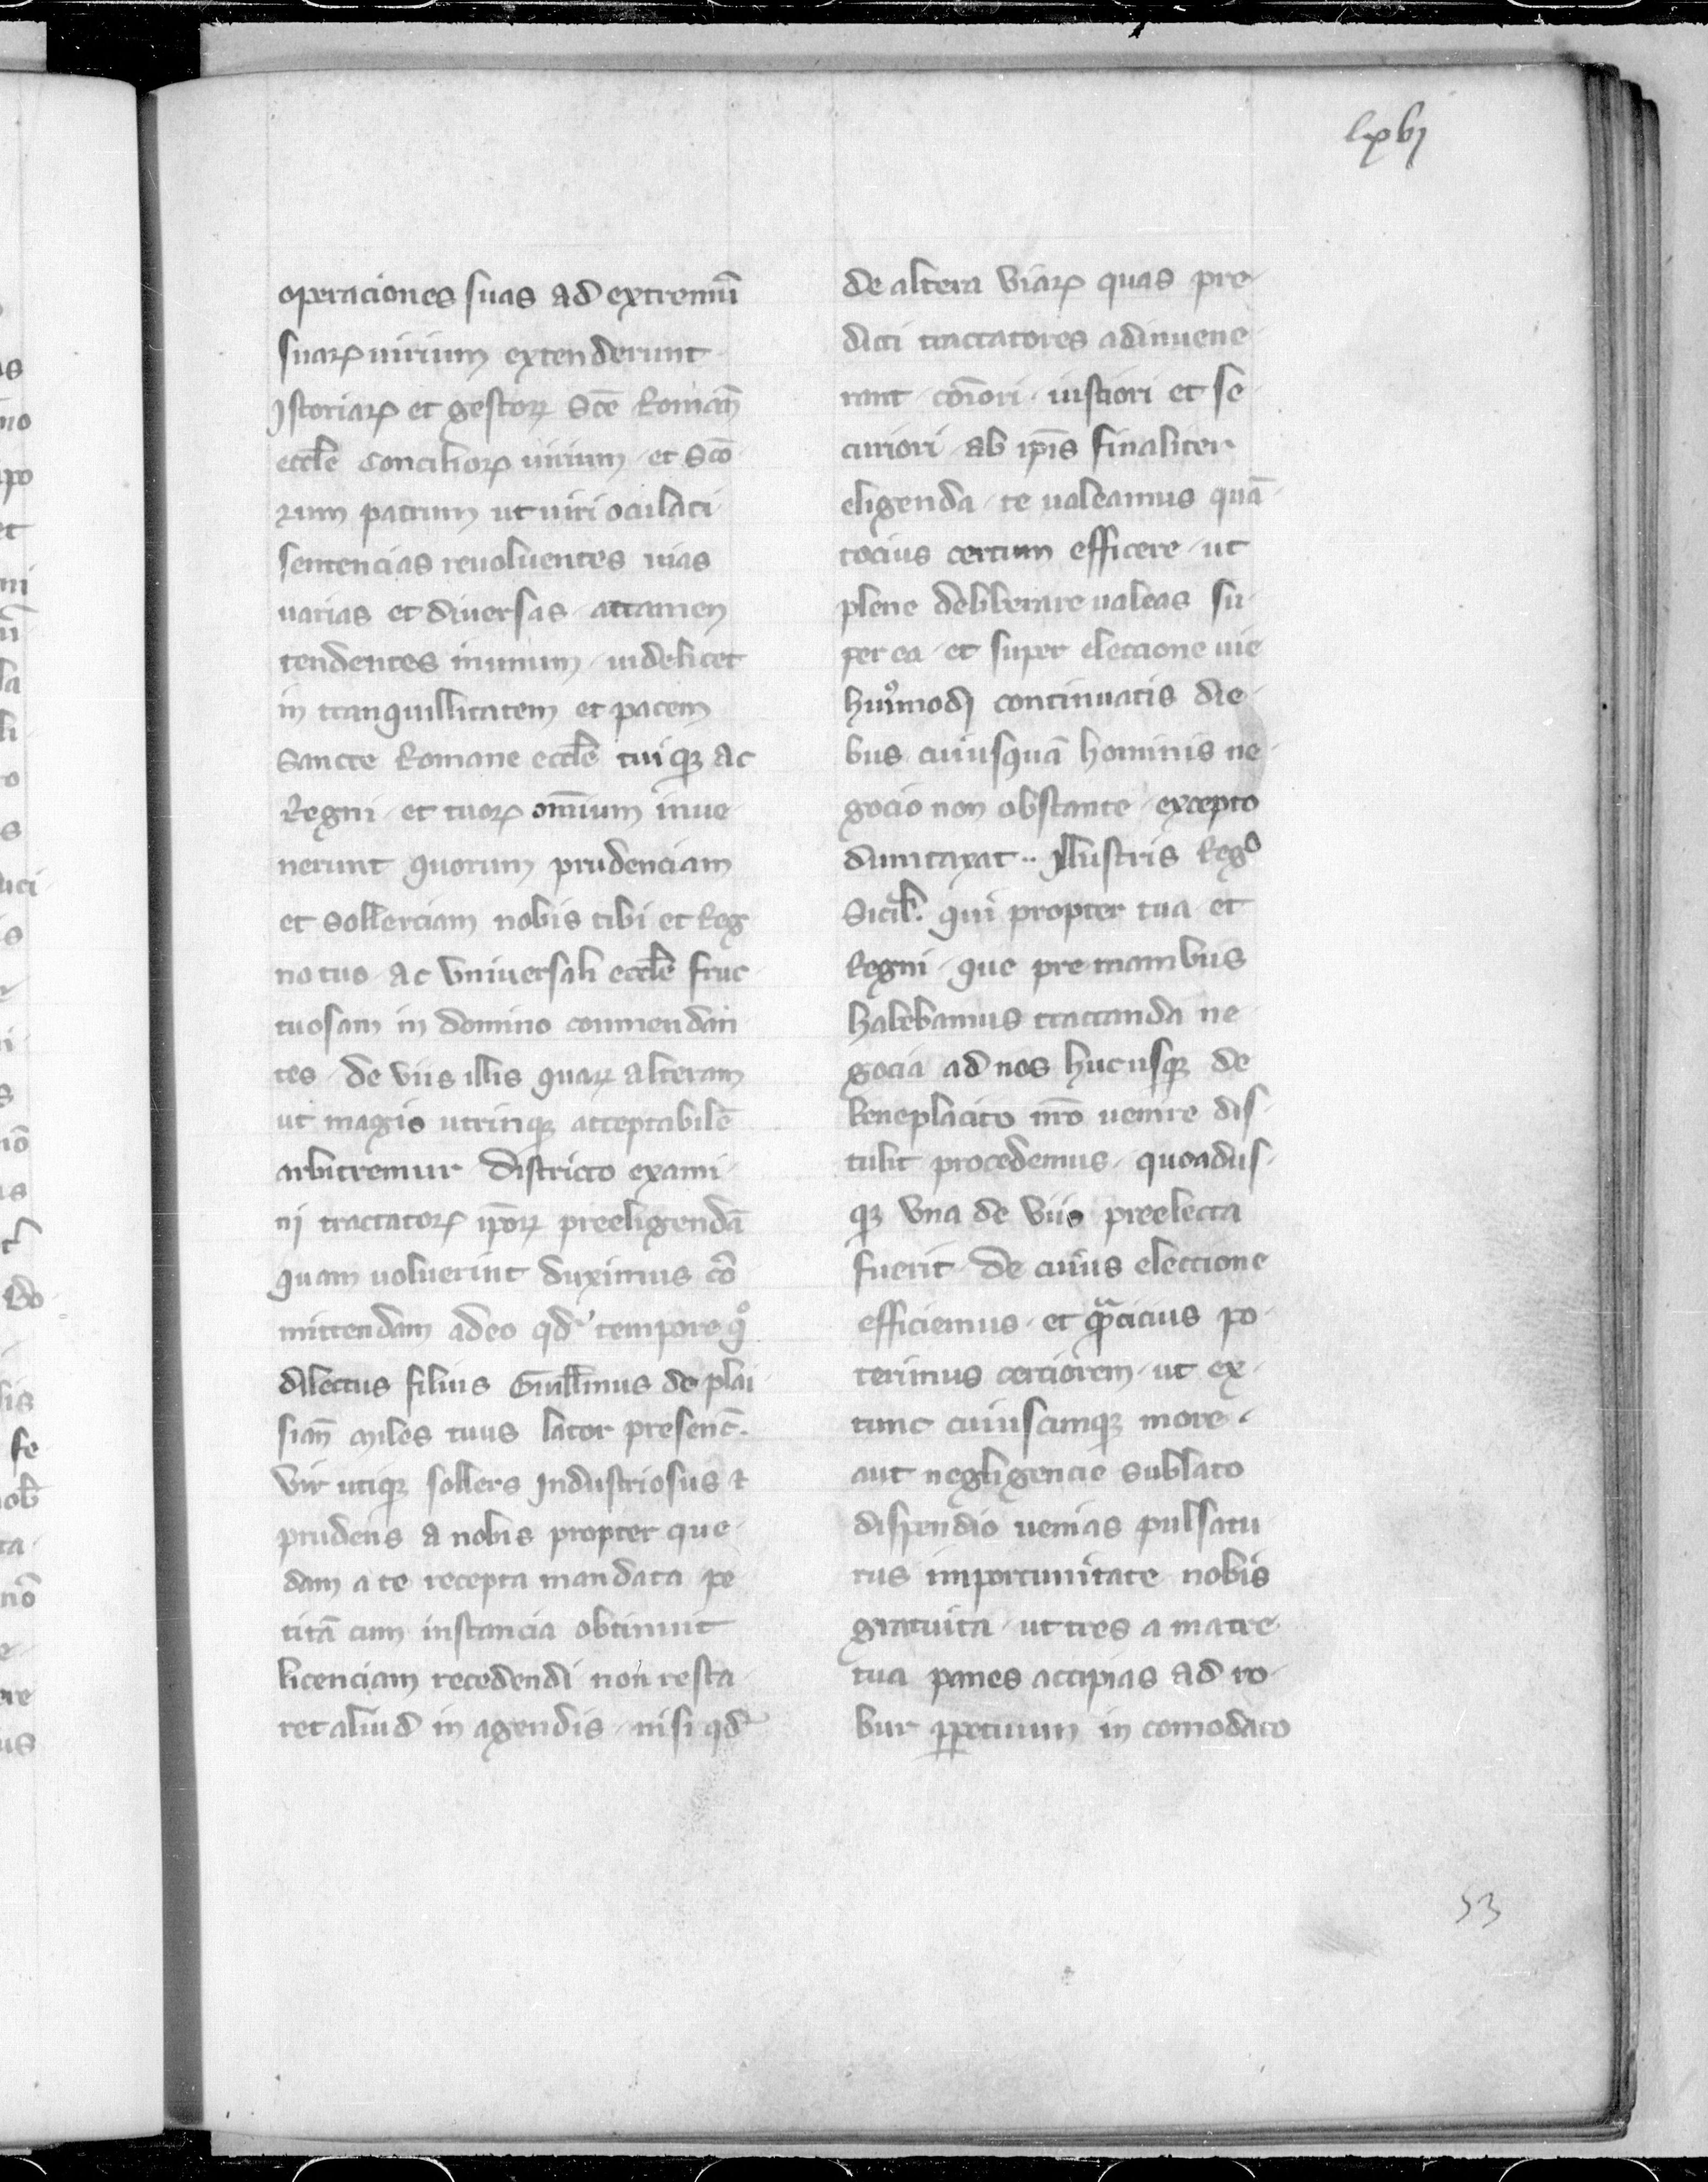 lxvj
operaciones suas ad extremū
suaꝝ uirium extenderunt
Istoriaꝝ et gestoꝝ Sc̄e Roman̄
eccl̄e Concilioꝝ uirium et Sc̄o
rum patrum ut uiri oculati
sentencias reuoluentes uias
uarias et diuersas attamen
tendentes inunum uidelicet
in tranquillitatem et pacem
Sancte Romane eccl̄e tuiqꝫ ac
Regni et tuoꝝ om̄ium inue
nerunt quorum prudenciam
et sollerciam nobis tibi et Reg
no tuo ac vniuersali eccl̄e fruc
tuosam in domino conmendan
tes de viis illis quaꝝ alteram
ut magis utrinqꝫ acceptabilē
arbitremur districto exami
nj tractatoꝝ ip̄oꝝ preeligendā
quam uoluerint duximus cō
mittendam adeo qd' tempore qͦ
dilectus filius Guill̄mus de plai
sian̄ miles tuus lator presenc̄.
vir utiqꝫ sollers Industriosus ⁊
prudens a nobis propter que
dam a te recepta mandata pe
titā cum instancia obtinuit
licenciam recedendi non resta
ret aliud in agendis nisi qd'
de altera viaꝝ quas pre
dicti tractatores adinuene
rant cōiori iustiori et se
curiori ab ip̄is finaliter
eligenda te ualeamus quā
tocius certum efficere ut
plene deliberare ualeas su
per ea et super eleccione uie
huiͦmodj continuatis die
bus cuiusquā hominis ne
gocio non obstante excepto
dumtaxat .. Illustris Reg
Sicil̄. qui propter tua et
Regni que pre manibus
habebamus tractanda ne
gocia ad nos hucusqꝫ de
beneplacito nr̄o uenire dis
tulit procedemus quoadus
qꝫ vna de viis preelecta
fuerit de cuius eleccione
efficiemus et qͣ̃cicius po
terimus certiorem ut ex
tunc cuiuscumqꝫ more
aut negligencie sublato
dispendio uenias pulsatu
rus importunitate nobis
gratuita ut tres a matre
tua panes accipias ad ro
bur ꝑpetuum in comodato
53